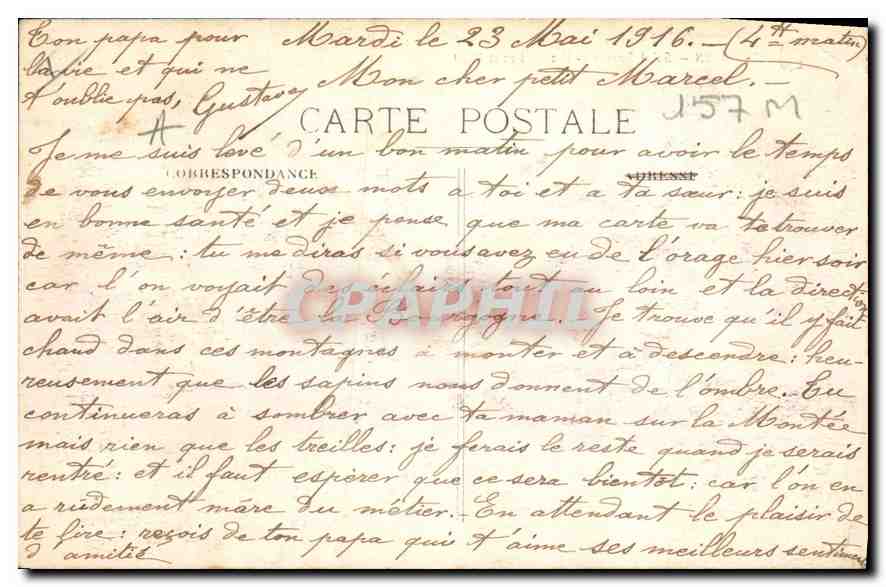 Mardi le 23 Mai 1916. - (4 H matin)
Mon cher petit Marcel. -
157 M
CARTE POSTALE
CORRESPONDANCE
ADRESSE
Je me suis levé d'un bon matin pour avoir le temps
de vous envoyer deux mots a toi et a ta sœur : je suis
en bonne santé et je pense que ma carte va te trouver
de même : tu me diras si vous avez eu de l'orage hier soir
car l'on voyait des éclairs tout au loin et la direction
avait l'air d'être la Bourgogne. Je trouve qu'il y fait
chaud dans ces montagnes à monter et à descendre : heu-
reusement que les sapins nous donnent de l'ombre. Tu
continueras à sombrer avec ta maman sur la Montée
mais rien que les treilles : je ferais le reste quand je serais
rentré : et il faut espérer que ce sera bientôt : car l'on en
a rudement mare du métier. - En attendant le plaisir de
te lire : reçois de ton papa qui t'aime ses meilleurs sentiments
d'amitié
Ton papa pour
la vie et qui ne
t'oublie pas, Gustave
CPAPHIL